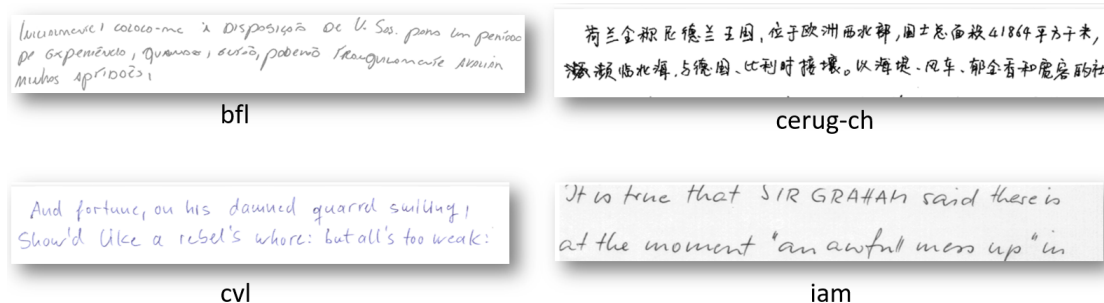 Inicialmente, coloco-me à disposição de V. Sas. para um período
de experiência, quando, então, poderão tranquilamente avaliar
minhas aptidões,
bfl
荷兰全称尼德兰王国,位于欧洲西北部,国土总面积41864平方千米,
濒临北海,与德国、比利时接壤。以海堤、风车、郁金香和宽容的社
cerug-ch
And fortune, on his damned quarrel smiling,
Show'd like a rebel's whore: but all's too weak:
cvl
It is true that SIR GRAHAM said there is
at the moment "an awful mess up" in
iam